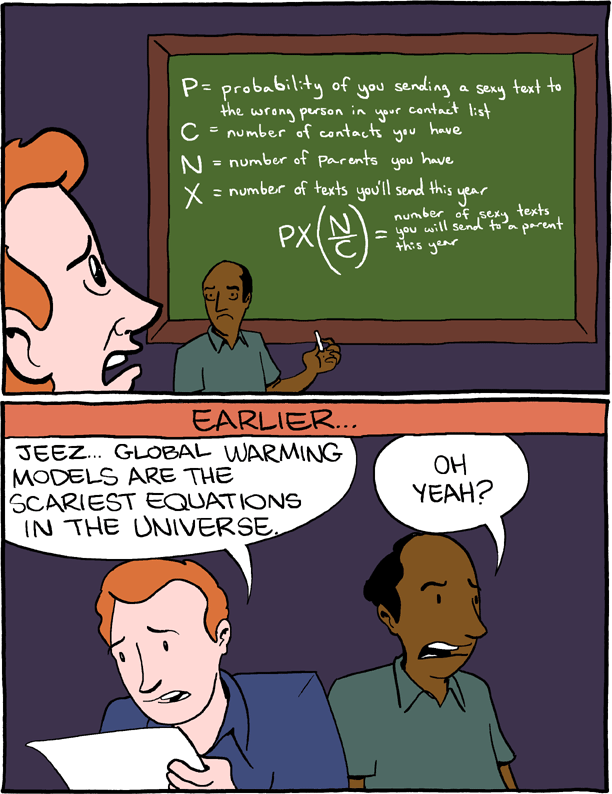 P = probability of you sending a sexy text to
the wrong person in your contact list
C = number of contacts you have
N = number of parents you have
X = number of texts you'll send this year
PX(N/C) = number of sexy texts
you will send to a parent
this year
EARLIER...
JEEZ... GLOBAL WARMING
MODELS ARE THE
SCARIEST EQUATIONS
IN THE UNIVERSE.
OH
YEAH?